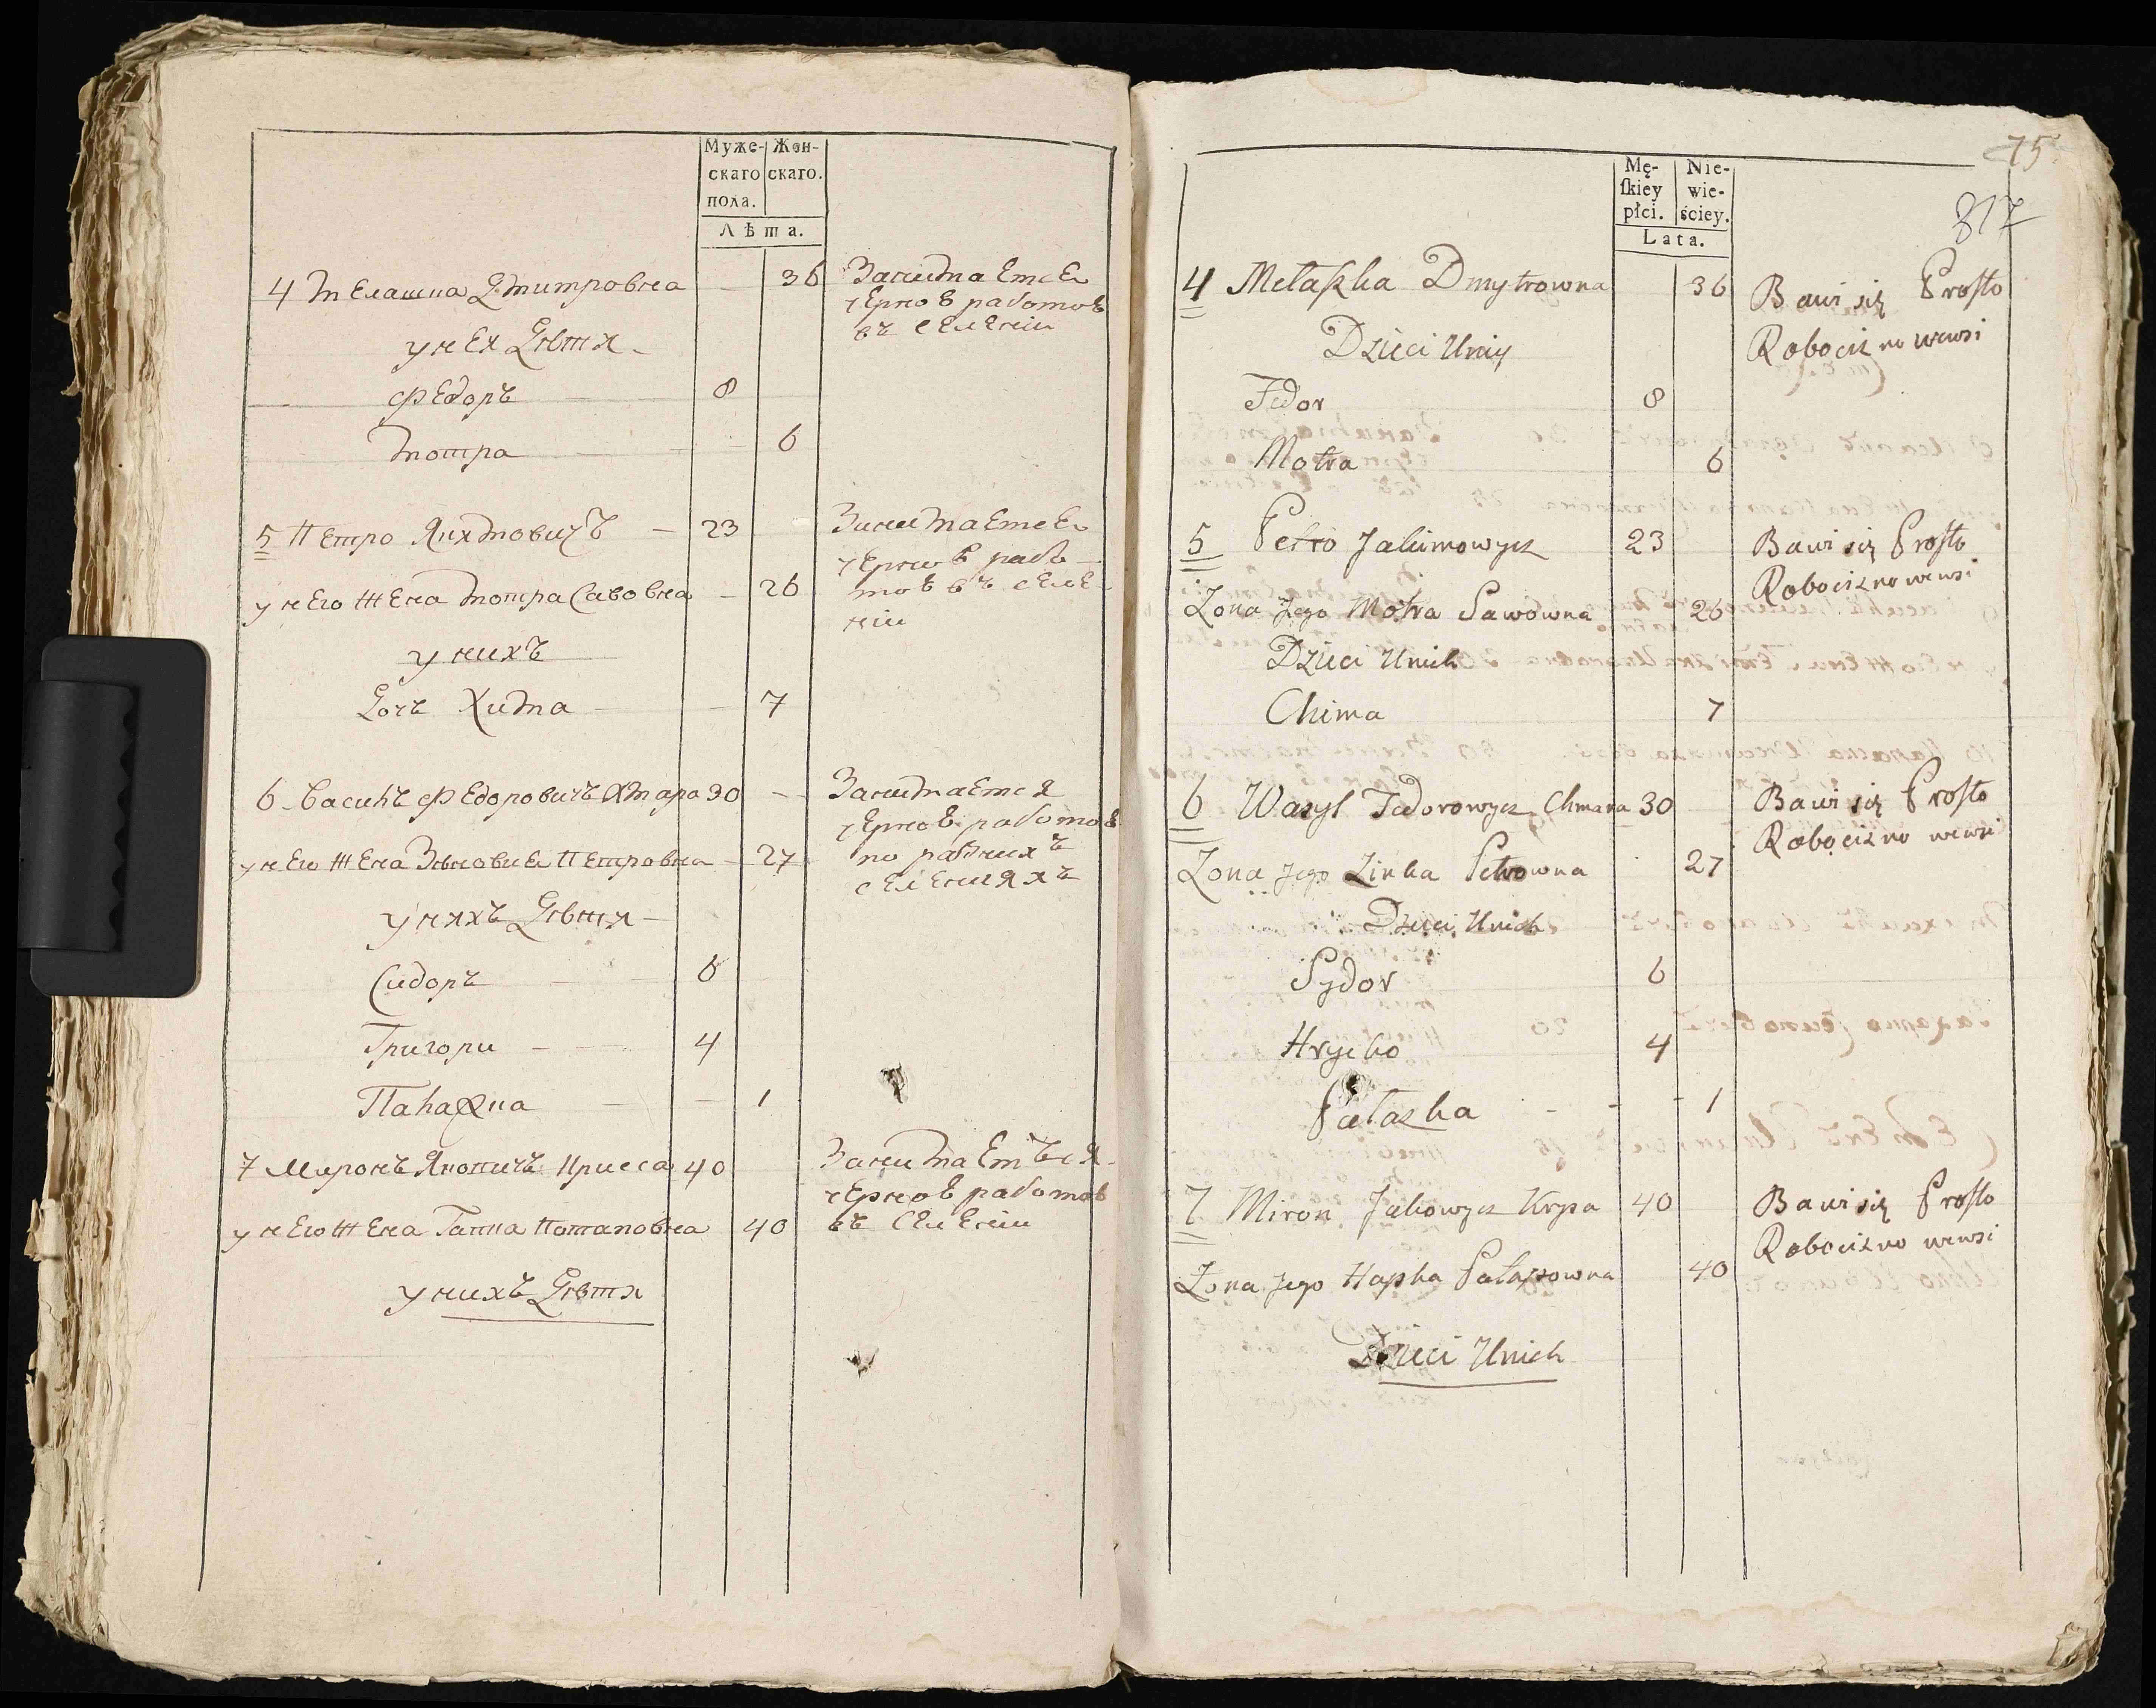 Муже- Жен-
скаго скаго.
пола.
Лѣта.
4 Мелашка Дмитровна — 36 Занимаетсе
черною работою
въ селеніи
у неи Дѣти
Федоръ 8
Мотра 6
5 Петро Якимовичъ — 23 Занимаетсе
черною рабо-
у него жена Мотра Савовна — 26 тою въ селе-
ніи
у нихъ
Дочь Хима 7
6 Василь Федоровичъ Хмара 30 — Занимаетсе
черною работою
у него жена Петровна — 27 по разнихъ
селенияхъ
у нихъ Дѣти —
Сидоръ 6
Григори 4
Палажка 1
7 Миронъ 40 Занимаетъся
черною работою
у него жена Гапка Потаповна 40 въ Селеніи
у нихъ Дѣти
75
317
Mę- Nie-
skiey wie-
płci. ściey.
Lata.
4 Melaszka Dmytrowna 36 Bawi się Prosto
Robocizno wewsi
Dzieci Uniy
Fedor 8
Motra 6
5 Petro Jakimowycz 23 Bawi się Prosto
Robocizno wewsi
Zona Jego Motra Sawowna 26
Dzieci Unich
Chima 7
6 Wasyl Fedorowycz Chmara 30 Bawi się Prosto
Robocizno wewsi
Zona Jego Zinka Petrowna 27
Dzieci Unich
Sydor 6
Hrycko 4
Palazka - - - 1
7 Miron Jakowycz Krysa 40 Bawi się Prosto
Robocizno wewsi
Zona Jego Hapka Patapowna 40
Dzieci Unich